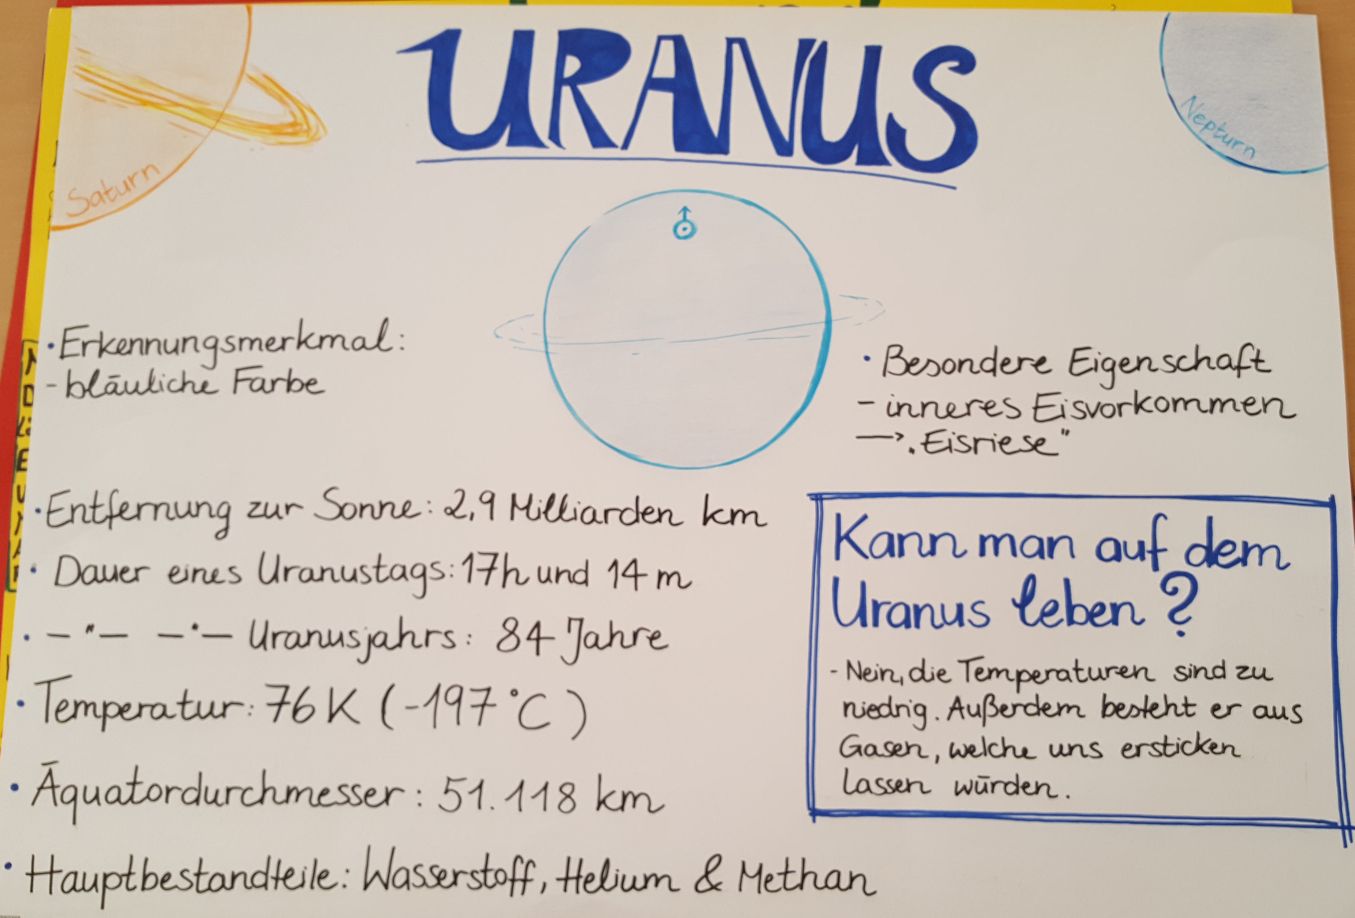 URANUS
Saturn
Nepturn
• Erkennungsmerkmal:
- bläuliche Farbe
• Besondere Eigenschaft
- inneres Eisvorkommen
→ „Eisriese"
• Entfernung zur Sonne: 2,9 Milliarden km
• Dauer eines Uranustags: 17h und 14 m
• — " — — " — Uranusjahrs: 84 Jahre
• Temperatur: 76 K (-197 °C)
• Äquatordurchmesser: 51.118 km
• Hauptbestandteile: Wasserstoff, Helium & Methan
Kann man auf dem
Uranus leben?
- Nein, die Temperaturen sind zu
niedrig. Außerdem besteht er aus
Gasen, welche uns ersticken
lassen würden.